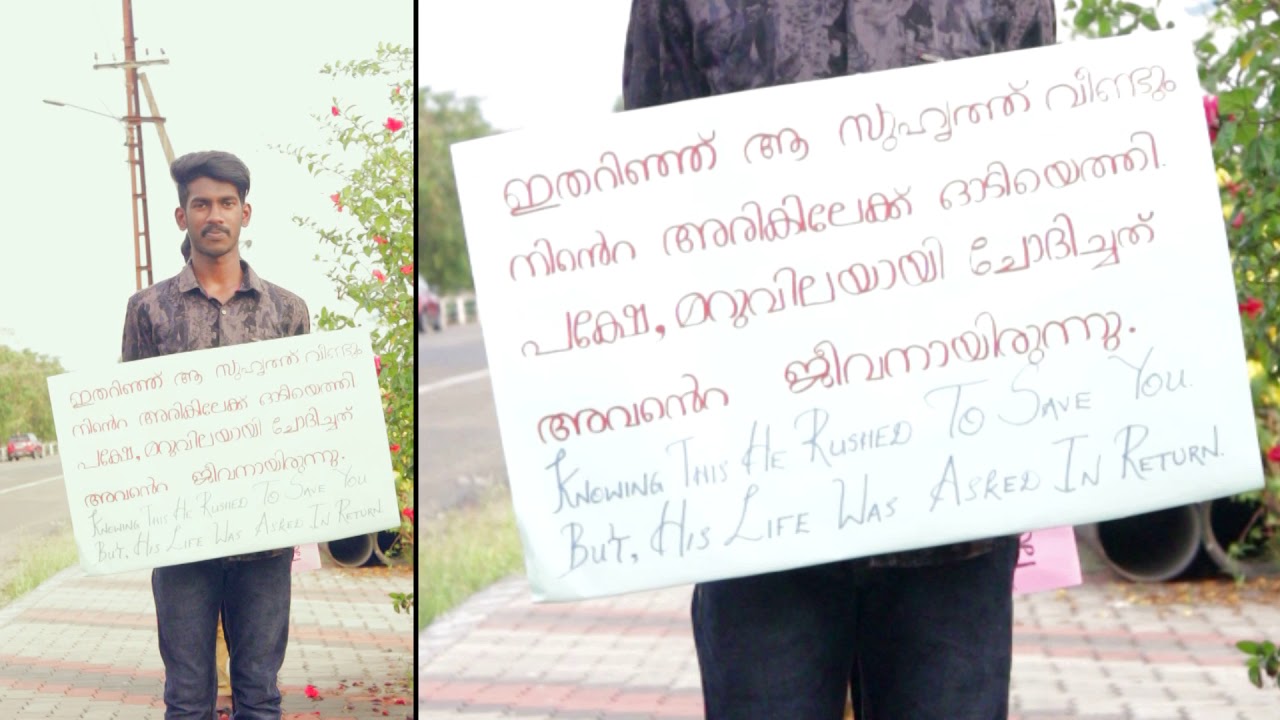 ഇതറിഞ്ഞ് ആ സുഹൃത്ത് വീണ്ടും
നിന്റെ അരികിലേക്ക് ഓടിയെത്തി
പക്ഷേ, മറുവിലയായി ചോദിച്ചത്
അവന്റെ ജീവനായിരുന്നു.
KNOWING THIS HE RUSHED TO SAVE YOU
BUT, HIS LIFE WAS ASKED IN RETURN.
ഇതറിഞ്ഞ് ആ സുഹൃത്ത് വീണ്ടും
നിന്റെ അരികിലേക്ക് ഓടിയെത്തി.
പക്ഷേ, മറുവിലയായി ചോദിച്ചത്
അവന്റെ ജീവനായിരുന്നു.
KNOWING THIS HE RUSHED TO SAVE YOU.
BUT, HIS LIFE WAS ASKED IN RETURN.